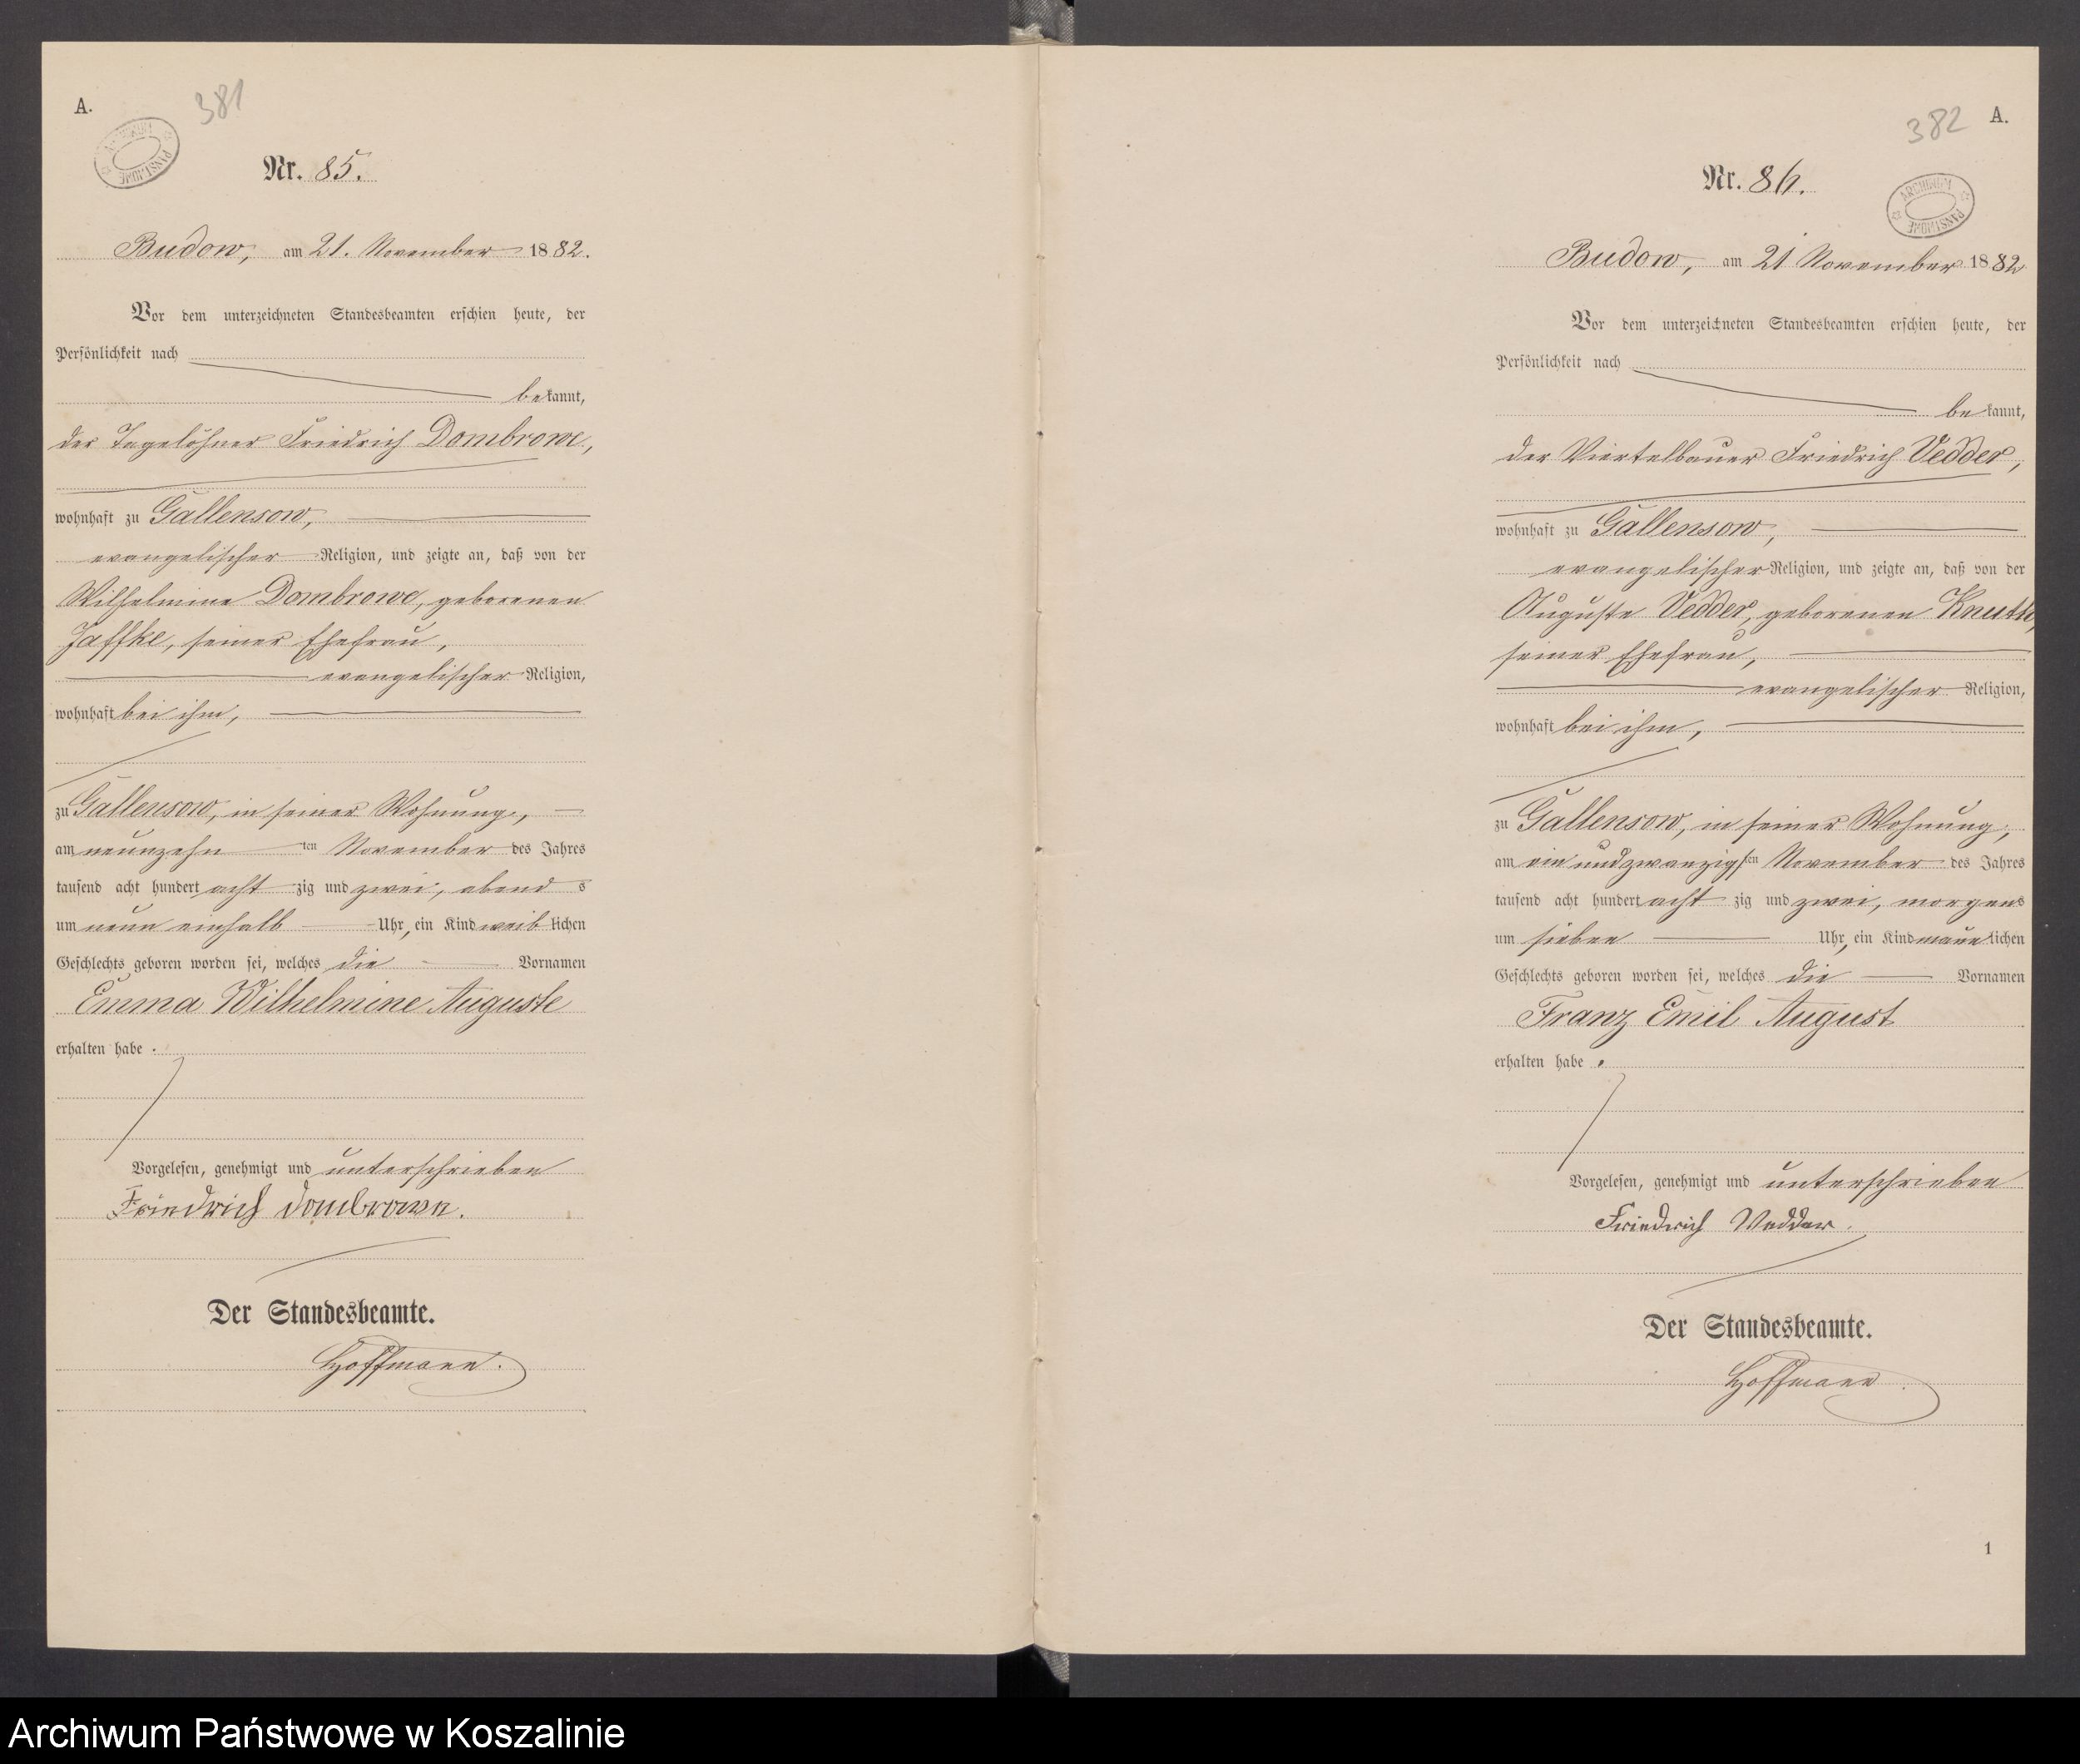 A.
381
ARCHIWUM PAŃSTWOWE
Nr. 85.
Budow, am 21. November 1882.
Vor dem unterzeichneten Standesbeamten erschien heute, der
Persönlichkeit nach
bekannt,
der Tagelöhner Friedrich Dombrowe,
wohnhaft zu Gallensow,
evangelischer Religion, und zeigte an, daß von der
Wilhelmine Dombrowe, geborenen
Jaffke, seiner Ehefrau,
evangelischer Religion,
wohnhaft bei ihm,
zu Gallensow, in seiner Wohnung,
am neunzehn ten November des Jahres
tausend acht hundert acht zig und zwei, abend s
um neun einhalb Uhr, ein Kind weib lichen
Geschlechts geboren worden sei, welches die Vornamen
Emma Wilhelmine Auguste
erhalten habe.
Vorgelesen, genehmigt und unterschrieben
Friedrich Dombrowe.
Der Standesbeamte.
Hoffmann.
382
A.
Nr. 86.
ARCHIWUM PAŃSTWOWE
Budow, am 21 November 1882
Vor dem unterzeichneten Standesbeamten erschien heute, der
Persönlichkeit nach
bekannt,
der Viertelbauer Friedrich Vedder,
wohnhaft zu Gallensow,
evangelischer Religion, und zeigte an, daß von der
Auguste Vedder, geborenen Knuth,
seiner Ehefrau,
evangelischer Religion,
wohnhaft bei ihm,
zu Gallensow, in seiner Wohnung,
am ein und zwanzigsten November des Jahres
tausend acht hundert acht zig und zwei, morgens
um sieben Uhr, ein Kind männ lichen
Geschlechts geboren worden sei, welches die Vornamen
Franz Emil August
erhalten habe.
Vorgelesen, genehmigt und unterschrieben
Friedrich Vedder.
Der Standesbeamte.
Hoffmann.
1
Archiwum Państwowe w Koszalinie